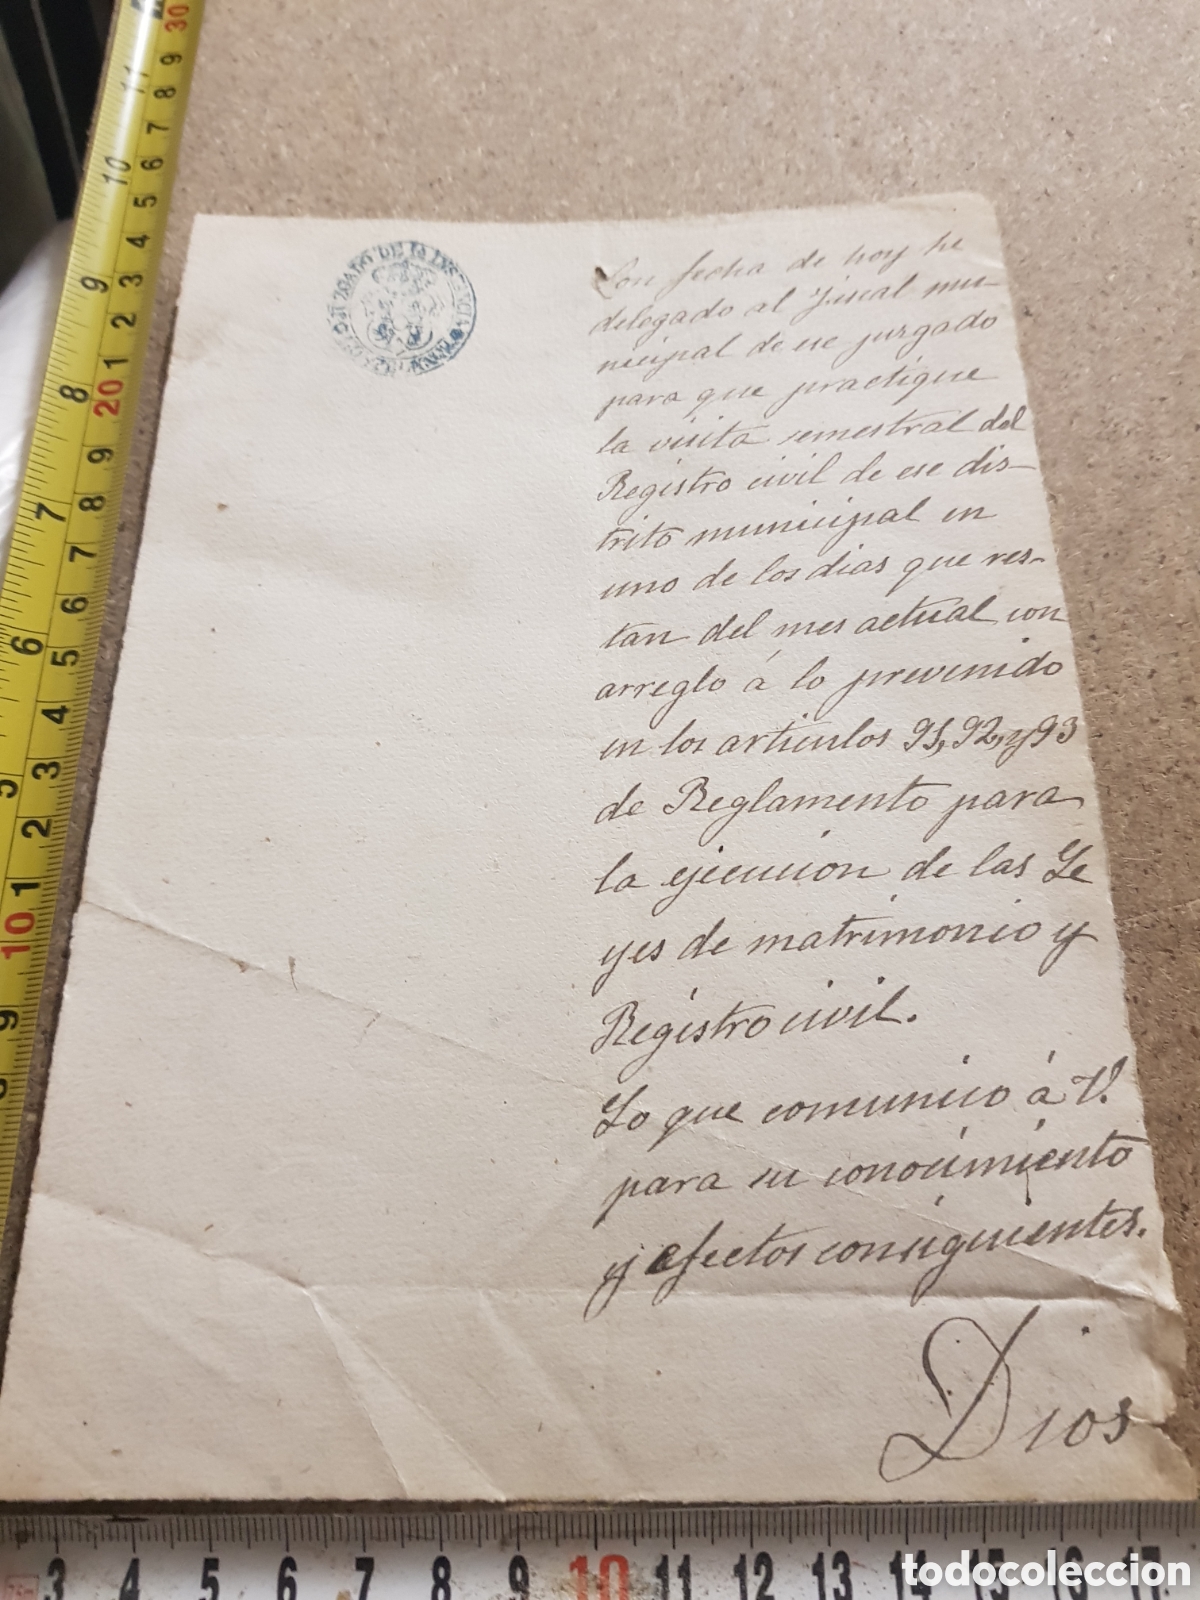 JUZGADO DE 1ª INSTANCIA
Con fecha de hoy he
delegado al Fiscal mu-
nicipal de ese juzgado
para que practique
la visita semestral del
Registro civil de ese dis-
trito municipal en
uno de los dias que res-
tan del mes actual con
arreglo á lo prevenido
en los articulos 91, 92, y 93
de Reglamento para
la ejecucion de las Le
yes de matrimonio y
Registro civil.
Lo que comunico á V.
para su conocimiento
y efectos consiguientes.
Dios
11 10 9 8 7 6 5
30 9 8 7 6 5 4 3 2 1 20 9 8 7 6 5 4 3 2 1 10 9 8
3 4 5 6 7 8 9 10 11 12 13 14 15 16 17
todocoleccion